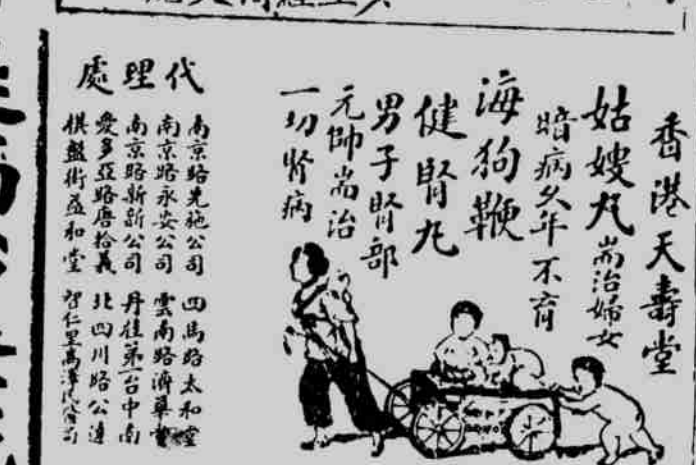 香港天壽堂
姑嫂丸耑治婦女
暗病久年不育
海狗鞭
健腎丸
男子腎部
元帥耑治
一切腎病
代理處
南京路先施公司
南京路永安公司
南京路新新公司
愛多亞路唐拾義
棋盤街益和堂
四馬路太和堂
雲南路濟華堂
丹桂第一台中南
北四川路公達